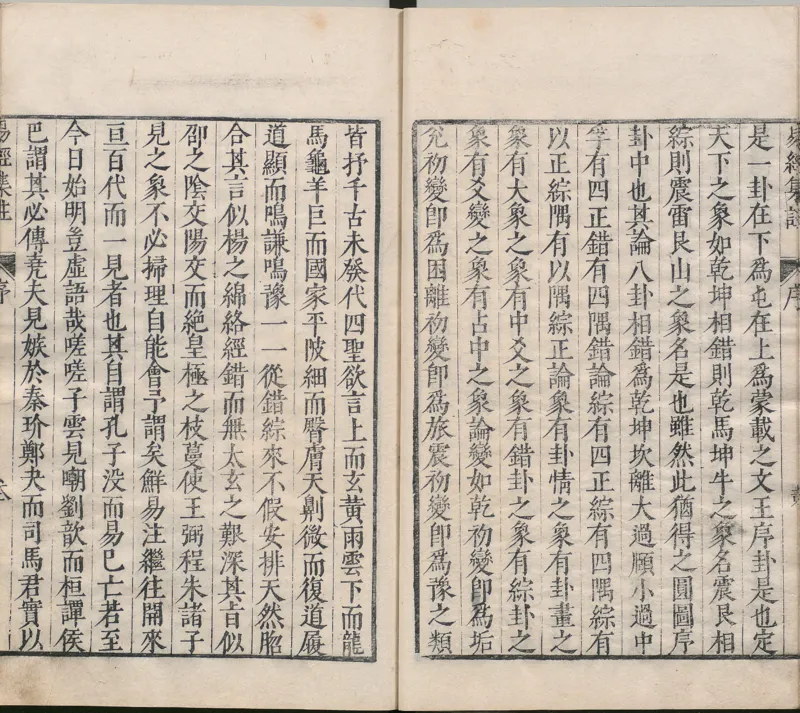 易經集註 序
是一卦在下爲屯在上爲蒙載之文王序卦是也定
天下之象如乾坤相錯則乾馬坤牛之象名震艮相
綜則震雷艮山之象名是也雖然此猶得之圓圖序
卦中也其論八卦相錯爲乾坤坎離大過頤小過中
孚有四正錯有四隅錯論綜有四正綜有四隅綜有
以正綜隅有以隅綜正論象有卦情之象有卦畫之
象有大象之象有中爻之象有錯卦之象有綜卦之
象有爻變之象有占中之象論變如乾初變卽爲垢
兊初變卽爲困離初變卽爲旅震初變卽爲豫之類
皆抒千古未發代四聖欲言上而玄黃雨雲下而龍
馬龜羊巨而國家平陂細而臀膚天劓微而復道履
道顯而鳴謙鳴豫一一從錯綜來不假安排天然脗
合其言似楊之綿絡經錯而無太玄之艱深其旨似
邵之陰交陽交而絕皇極之枝蔓使王弼程朱諸子
見之象不必掃理自能會予謂矣鮮易注繼往開來
亘百代而一見者也其自謂孔子没而易巳亡若至
今日始明豈虛語哉嗟嗟子雲見嘲劉歆而桓譚侯
巴謂其必傳堯夫見嫉於秦玠鄭夬而司馬君實以
易經集註 序